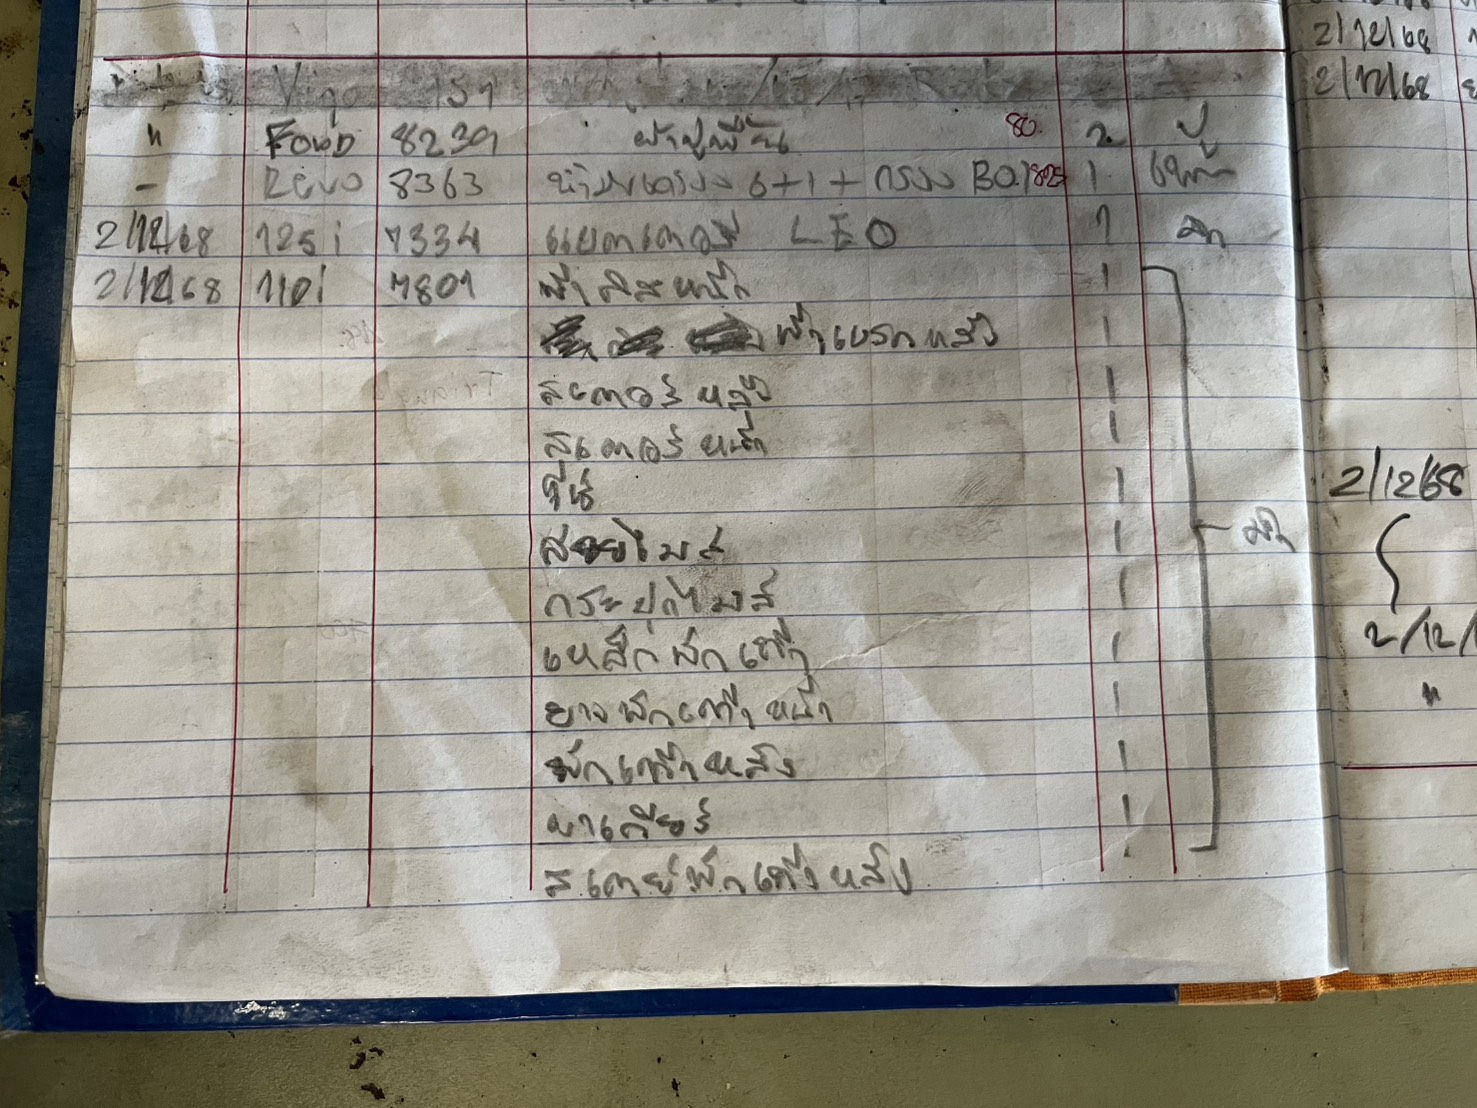 Vigo 151
" Ford 8239 ผ้าปูพื้น 80. 2 ปู
- Revo 8363 น้ำมันเครื่อง 6+1 + กรอง BO. 1
2/12/68 125i 7334 แบตเตอรี่ LEO 1
2/12/68 110i 7801 ผ้าดิสหน้า 1
ผ้าเบรคหลัง 1
สเตอร์หลัง 1
สเตอร์หน้า 1
โซ่ 1
สายไมล์ 1
กระปุกไมล์ 1
เหล็กพักเท้า 1
ยางพักเท้าหน้า 1
พักเท้าหลัง 1
ขาเกียร์ 1
ส.เตย์พักเท้าหลัง
2/12/68
2/12/68
2/12/68
2/12/
"